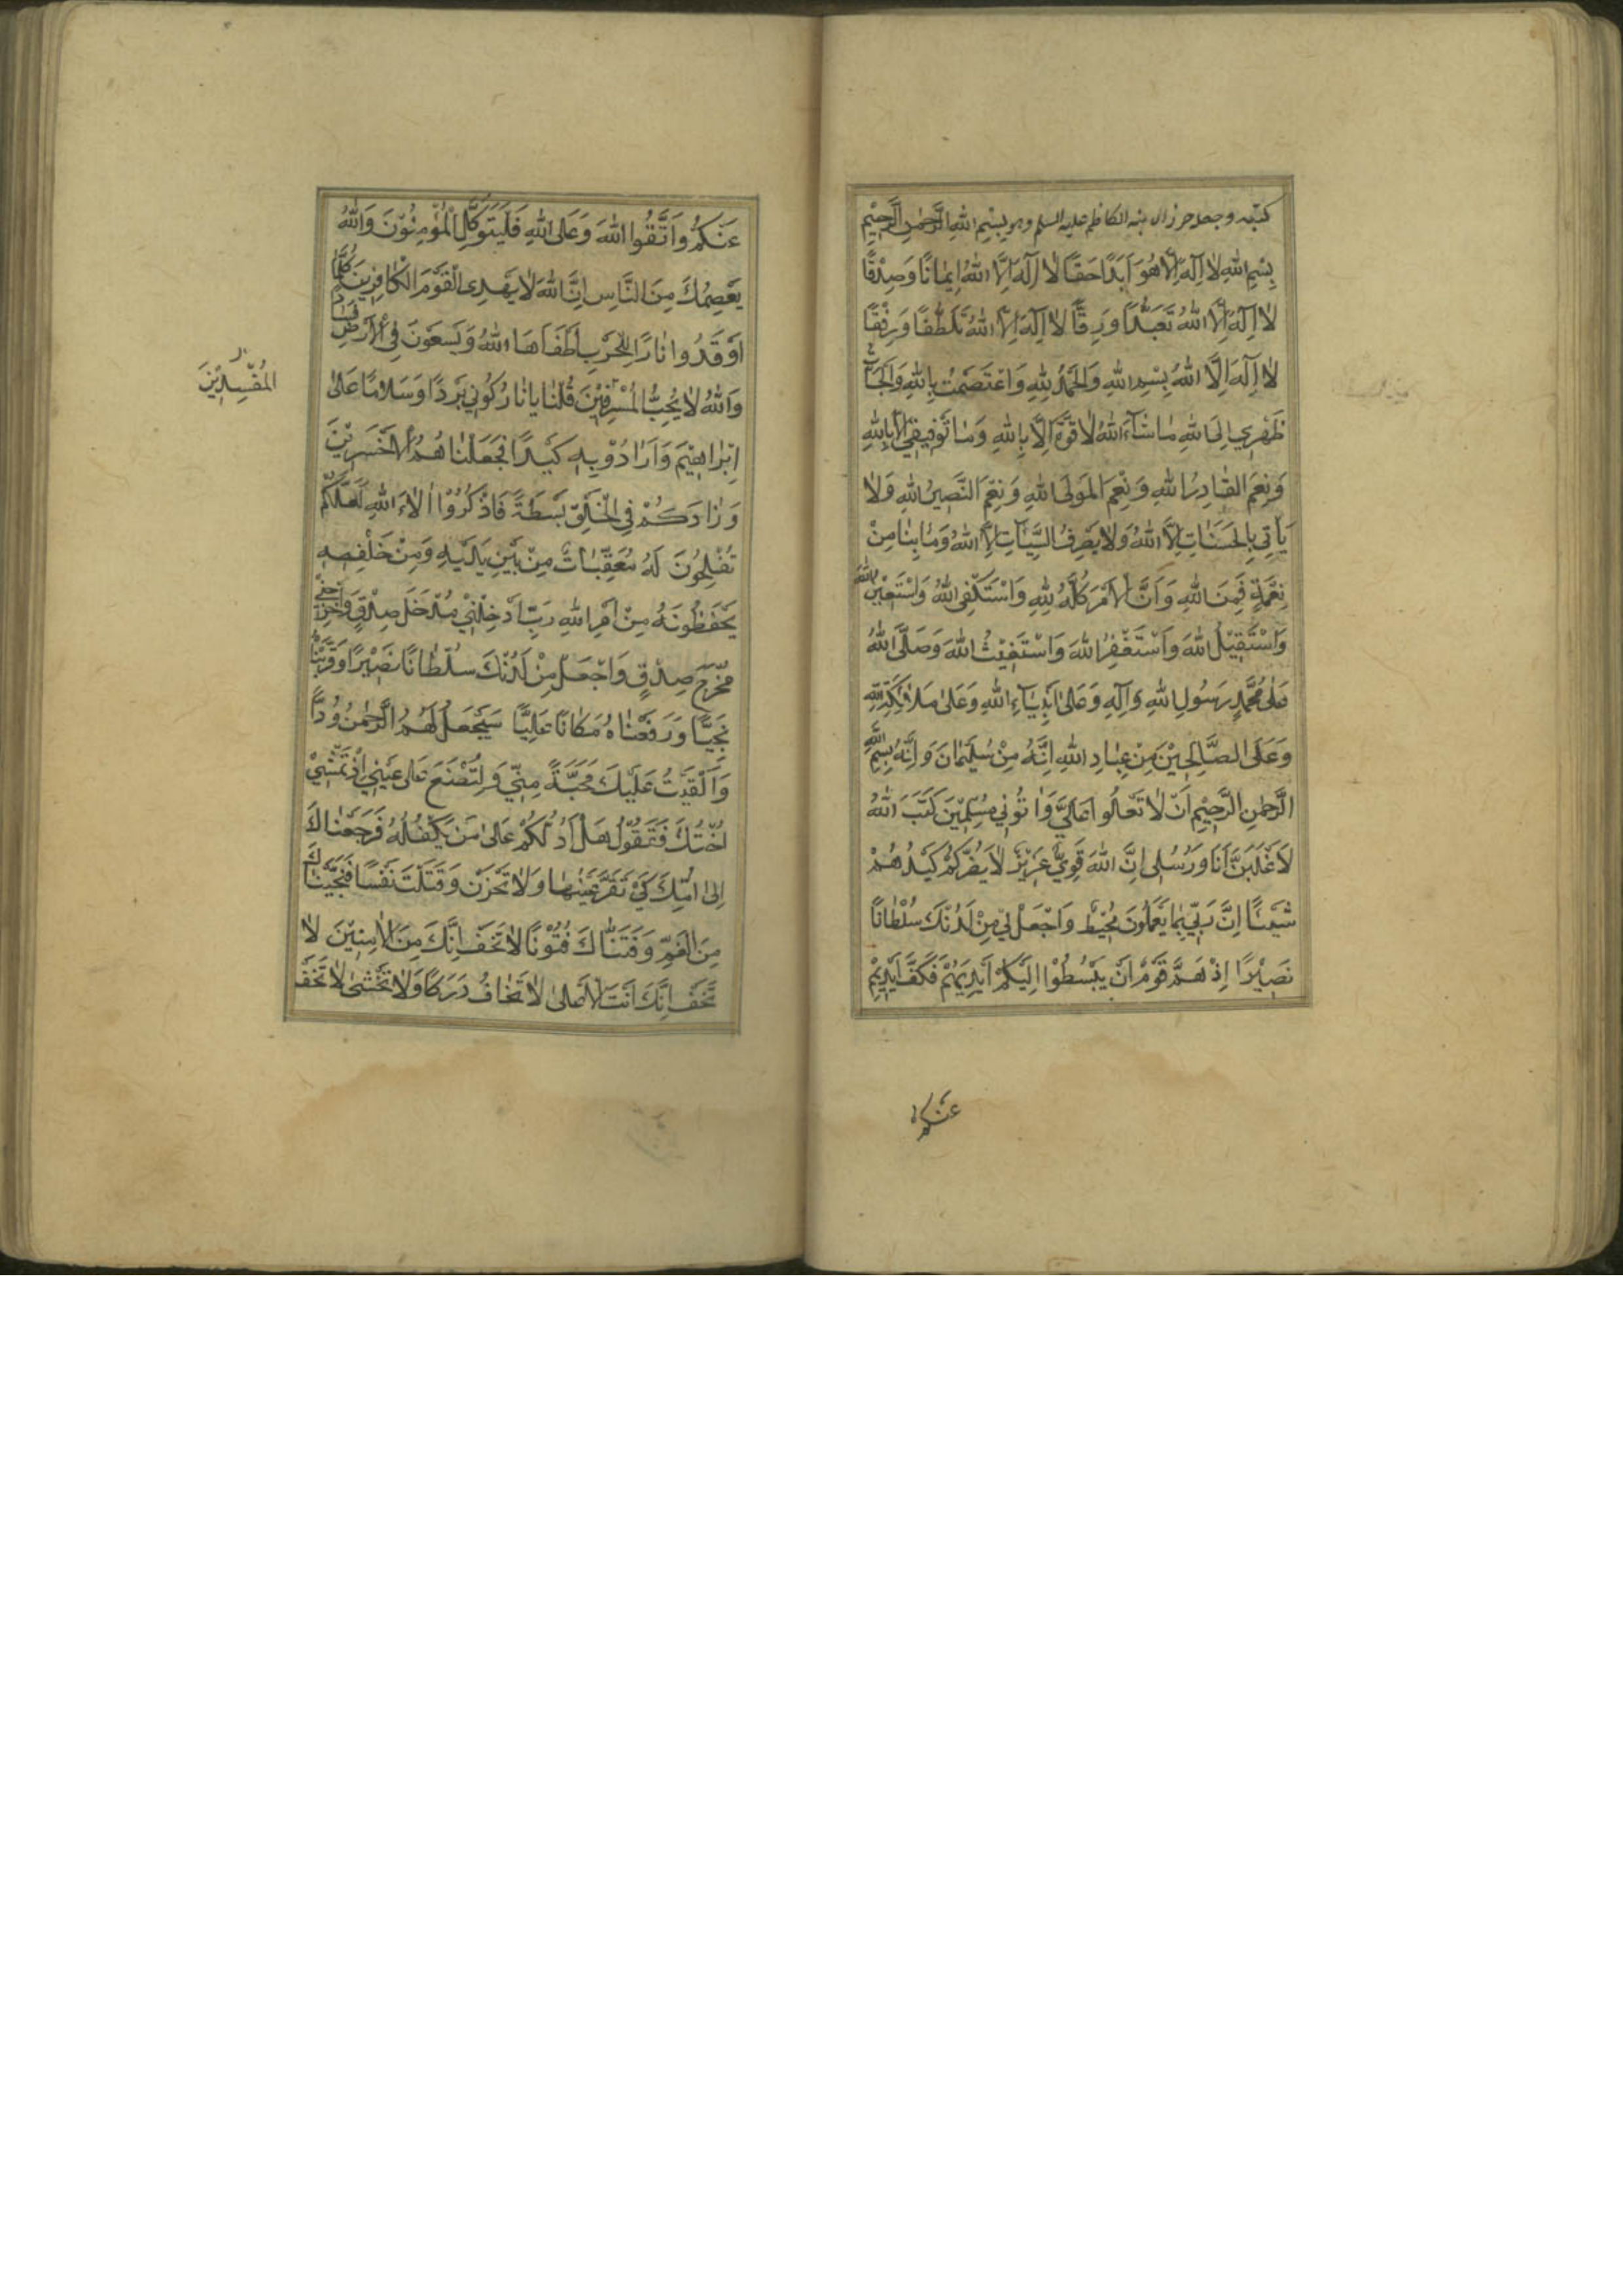 كتبه وجعل حرزا لابنه الكاظم عليه السلم وهو بِسْمِ اللهِ الرَّحْمٰنِ الرَّحِيْمِ
بِسْمِ اللهِ لا اِلٰهَ اِلَّا هُوَ اَبَدًا حَقًّا لا اِلٰهَ اِلَّا اللهُ اِيمانًا وَصِدْقًا
لا اِلٰهَ اِلَّا اللهُ تَعَبُّدًا وَرِقًّا لا اِلٰهَ اِلَّا اللهُ تَلَطُّفًا وَرِفْقًا
لا اِلٰهَ اِلَّا اللهُ بِسْمِ اللهِ وَالْحَمْدُ لِلّٰهِ وَاعْتَصَمْتُ بِاللهِ وَالْجَاْتُ
ظَهْرِي اِلَى اللهِ ما شاءَ اللهُ لا قُوَّةَ اِلَّا بِاللهِ وَما تَوْفِيقِي اِلَّا بِاللهِ
وَنِعْمَ القادِرُ اللهِ وَنِعْمَ المَوْلَى اللهِ وَنِعْمَ النَّصِيرُ اللهِ وَلا
يَأْتِي بِالحَسَناتِ اِلَّا اللهُ وَلا يَصْرِفُ السَّيِّئاتِ اِلَّا اللهُ وَما بِنا مِنْ
نِعْمَةٍ فَمِنَ اللهِ وَاَنَّ الْاَمْرَ كُلَّهُ لِلّٰهِ وَاَسْتَكْفِي اللهُ وَاَسْتَعِيْنُ اللهَ
وَاَسْتَقِيْلُ اللهَ وَاَسْتَغْفِرُ اللهَ وَاَسْتَغِيْثُ اللهَ وَصَلَّى اللهُ
عَلٰى مُحَمَّدٍ رَسُولِ اللهِ وَآلِهِ وَعَلٰى اَنْبِياءِ اللهِ وَعَلٰى مَلائِكَةِ اللهِ
وَعَلَى الصَّالِحِيْنَ مِنْ عِبادِ اللهِ اِنَّهُ مِنْ سُلَيْمانَ وَاِنَّهُ بِسْمِ اللهِ
الرَّحْمٰنِ الرَّحِيْمِ اَنْ لا تَعْلُوا عَلَيَّ وَاْتُونِي مُسْلِمِيْنَ كَتَبَ اللهُ
لَاَغْلِبَنَّ اَنَا وَرُسُلِى اِنَّ اللهَ قَوِيٌّ عَزِيْزٌ لا يَضُرُّكُمْ كَيْدُهُمْ
شَيْئًا اِنَّ رَبِّي بِما يَعْمَلُونَ مُحِيْطٌ وَاجْعَلْ لِي مِنْ لَدُنْكَ سُلْطانًا
نَصِيْرًا اِذْ هَمَّ قَوْمٌ اَنْ يَبْسُطُوْا اِلَيْكُمْ اَيْدِيَهُمْ فَكَفَّ اَيْدِيَهُمْ
عَنْكُمْ
عَنْكُمْ وَاتَّقُوا اللهَ وَعَلَى اللهِ فَلْيَتَوَكَّلِ الْمُؤْمِنُوْنَ وَاللهُ
يَعْصِمُكَ مِنَ النَّاسِ اِنَّ اللهَ لا يَهْدِى الْقَوْمَ الْكافِرِينَ كُلَّما
اَوْقَدُوا نارًا لِلْحَرْبِ اَطْفَأَهَا اللهُ وَيَسْعَوْنَ فِي الْاَرْضِ فَسادًا
وَاللهُ لا يُحِبُّ الْمُسْرِفِيْنَ قُلْنا يا نارُ كُونِي بَرْدًا وَسَلامًا عَلٰى
المُفْسِدِيْنَ
اِبْراهِيْمَ وَاَرادُوْا بِهِ كَيْدًا فَجَعَلْناهُمُ الْاَخْسَرِيْنَ
وَزادَكُمْ فِي الْخَلْقِ بَسْطَةً فَاذْكُرُوْا اٰلاءَ اللهِ لَعَلَّكُمْ
تُفْلِحُونَ لَهُ مُعَقِّباتٌ مِنْ بَيْنِ يَدَيْهِ وَمِنْ خَلْفِهِ
يَحْفَظُونَهُ مِنْ اَمْرِ اللهِ رَبِّ اَدْخِلْنِيْ مُدْخَلَ صِدْقٍ وَاَخْرِجْنِي
مُخْرَجَ صِدْقٍ وَاجْعَلْ مِنْ لَدُنْكَ سُلْطانًا نَصِيْرًا وَقَرَّبْناهُ
نَجِيًّا وَرَفَعْناهُ مَكانًا عَلِيًّا سَيَجْعَلُ لَهُمُ الرَّحْمٰنُ وُدًّا
وَاَلْقَيْتُ عَلَيْكَ مَحَبَّةً مِنِّي وَلِتُصْنَعَ عَلٰى عَيْنِي اِذْ تَمْشِيْ
اُخْتُكَ فَتَقُوْلُ هَلْ اَدُلُّكُمْ عَلٰى مَنْ يَكْفُلُهُ فَرَجَعْناكَ
اِلٰى اُمِّكَ كَيْ تَقَرَّ عَيْنُها وَلا تَحْزَنْ وَقَتَلْتَ نَفْسًا فَنَجَّيْناكَ
مِنَ الْغَمِّ وَفَتَنَّاكَ فُتُوْنًا لا تَخَفْ اِنَّكَ مِنَ الْاٰمِنِيْنَ لا
تَخَفْ اِنَّكَ اَنْتَ الْاَعْلٰى لا تَخافُ دَرَكًا وَلا تَخْشٰى لا تَخَفْ